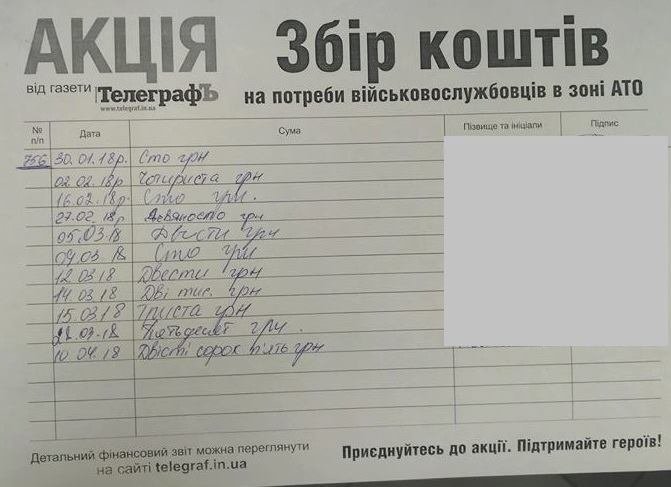 АКЦІЯ
від газети ТелеграфЪ
www.telegraf.in.ua
Збір коштів
на потреби військовослужбовців в зоні АТО
№ п/п Дата Сума Прізвище та ініціали Підпис
756 30.01.18р. Сто грн
02.02.18р Чотириста грн
16.02.18р. Сто грн.
27.02.18р Дев'яносто грн
05.03.18 Двісти грн
09.03.18 Сто грн
12.03.18 Двести грн
14.03.18 Дві тис. грн
15.03.18 Триста грн
22.03.18 Пятьдесят грн.
10.04.18 Двісті сорок п'ять грн
Детальний фінансовий звіт можна переглянути
на сайті telegraf.in.ua
Приєднуйтесь до акції. Підтримайте героїв!